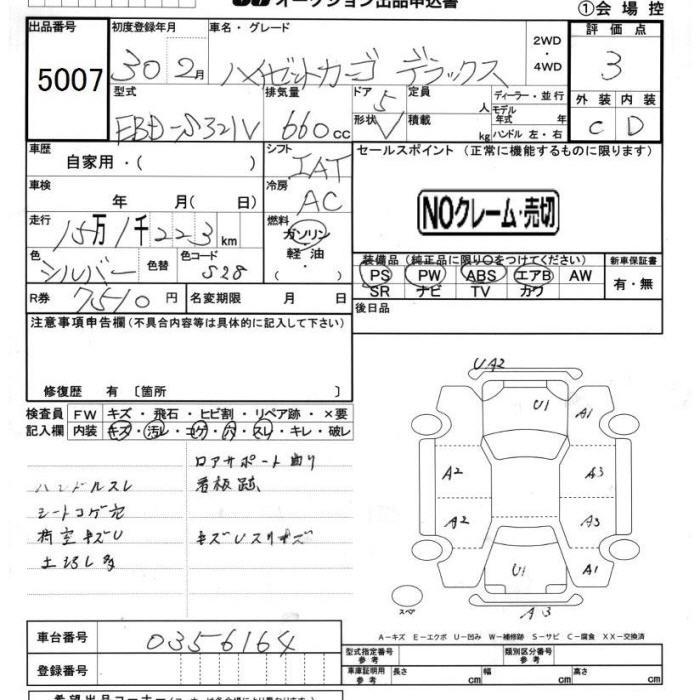 オークション出品申込書
①会場控
出品番号 5007
初度登録年月 30 2月
車名・グレード ハイゼットカーゴ デラックス
2WD・4WD
評価点 3
外装 C 内装 D
型式 EBD-S321V
排気量 660cc
ドア 5
形状 V
定員 人
積載 kg
ディーラー・並行
モデル年式 年
ハンドル 左・右
車歴 自家用・( )
シフト IAT
車検 年 月( 日)
冷房 AC
走行 15万1千223km
燃料 ガソリン・軽油・
色 シルバー 色替 色コード S28
R券 7510円 名変期限 月 日
セールスポイント (正常に機能するものに限ります)
NOクレーム・売切
装備品 (純正品に限り○をつけてください)
PS PW ABS エアB AW
SR ナビ TV カワ
新車保証書 有・無
後日品
注意事項申告欄(不具合内容等は具体的に記入して下さい)
修復歴 有 〔箇所 〕
検査員記入欄
FW キズ・飛石・ヒビ割・リペア跡・×要
内装 キズ・汚レ・コゲ・穴・スレ・キレ・破レ
ロアサポート曲り
ハンドルスレ 看板跡
シートコゲ穴
荷室キズU
UA2
U1
A1
A2
A3
A2
A3
U1
A1
A3
スペ
A-キズ E-エクボ U-凹み W-補修跡 S-サビ C-腐食 XX-交換済
車台番号 0356164
登録番号
型式指定番号 参考
類別区分番号 参考
車庫証明用 参考 長さ cm 幅 cm 高さ cm